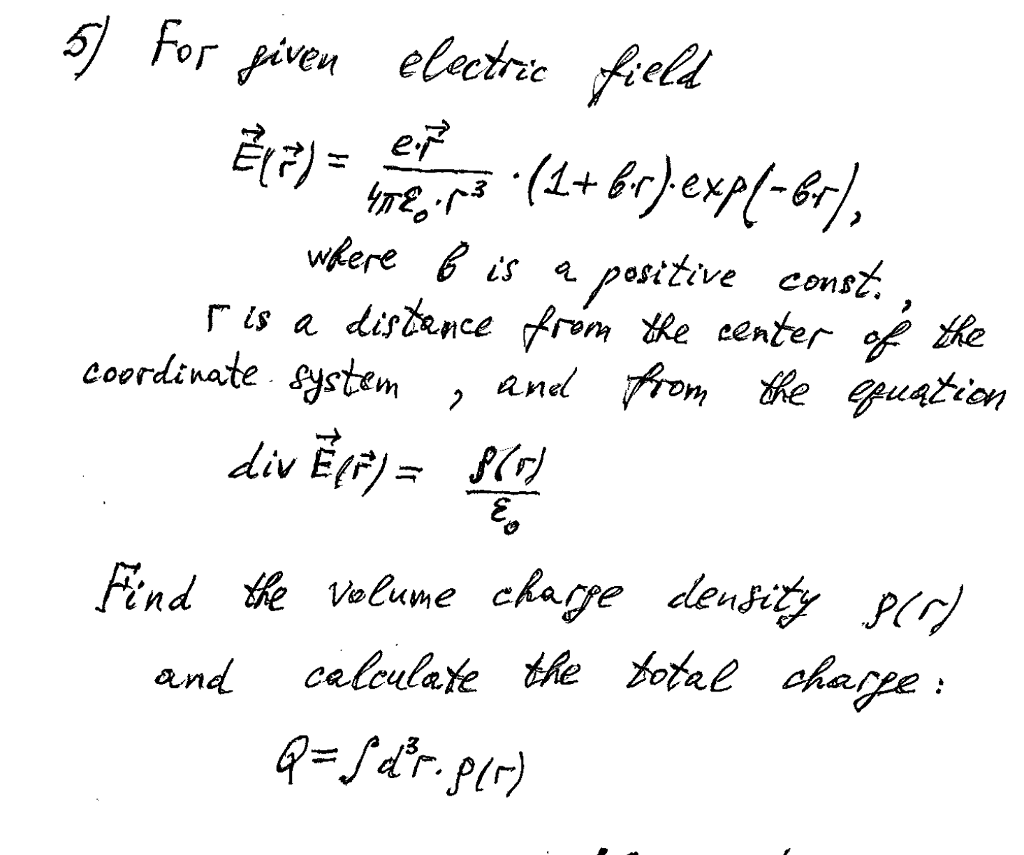 5) For given electric field
E⃗(r⃗) = e·r⃗ / 4πε₀·r³ · (1+b·r)·exp(-b·r),
where b is a positive const.,
r is a distance from the center of the
coordinate system, and from the equation
div E⃗(r⃗) = ρ(r) / ε₀
Find the volume charge density ρ(r)
and calculate the total charge:
Q = ∫d³r·ρ(r)